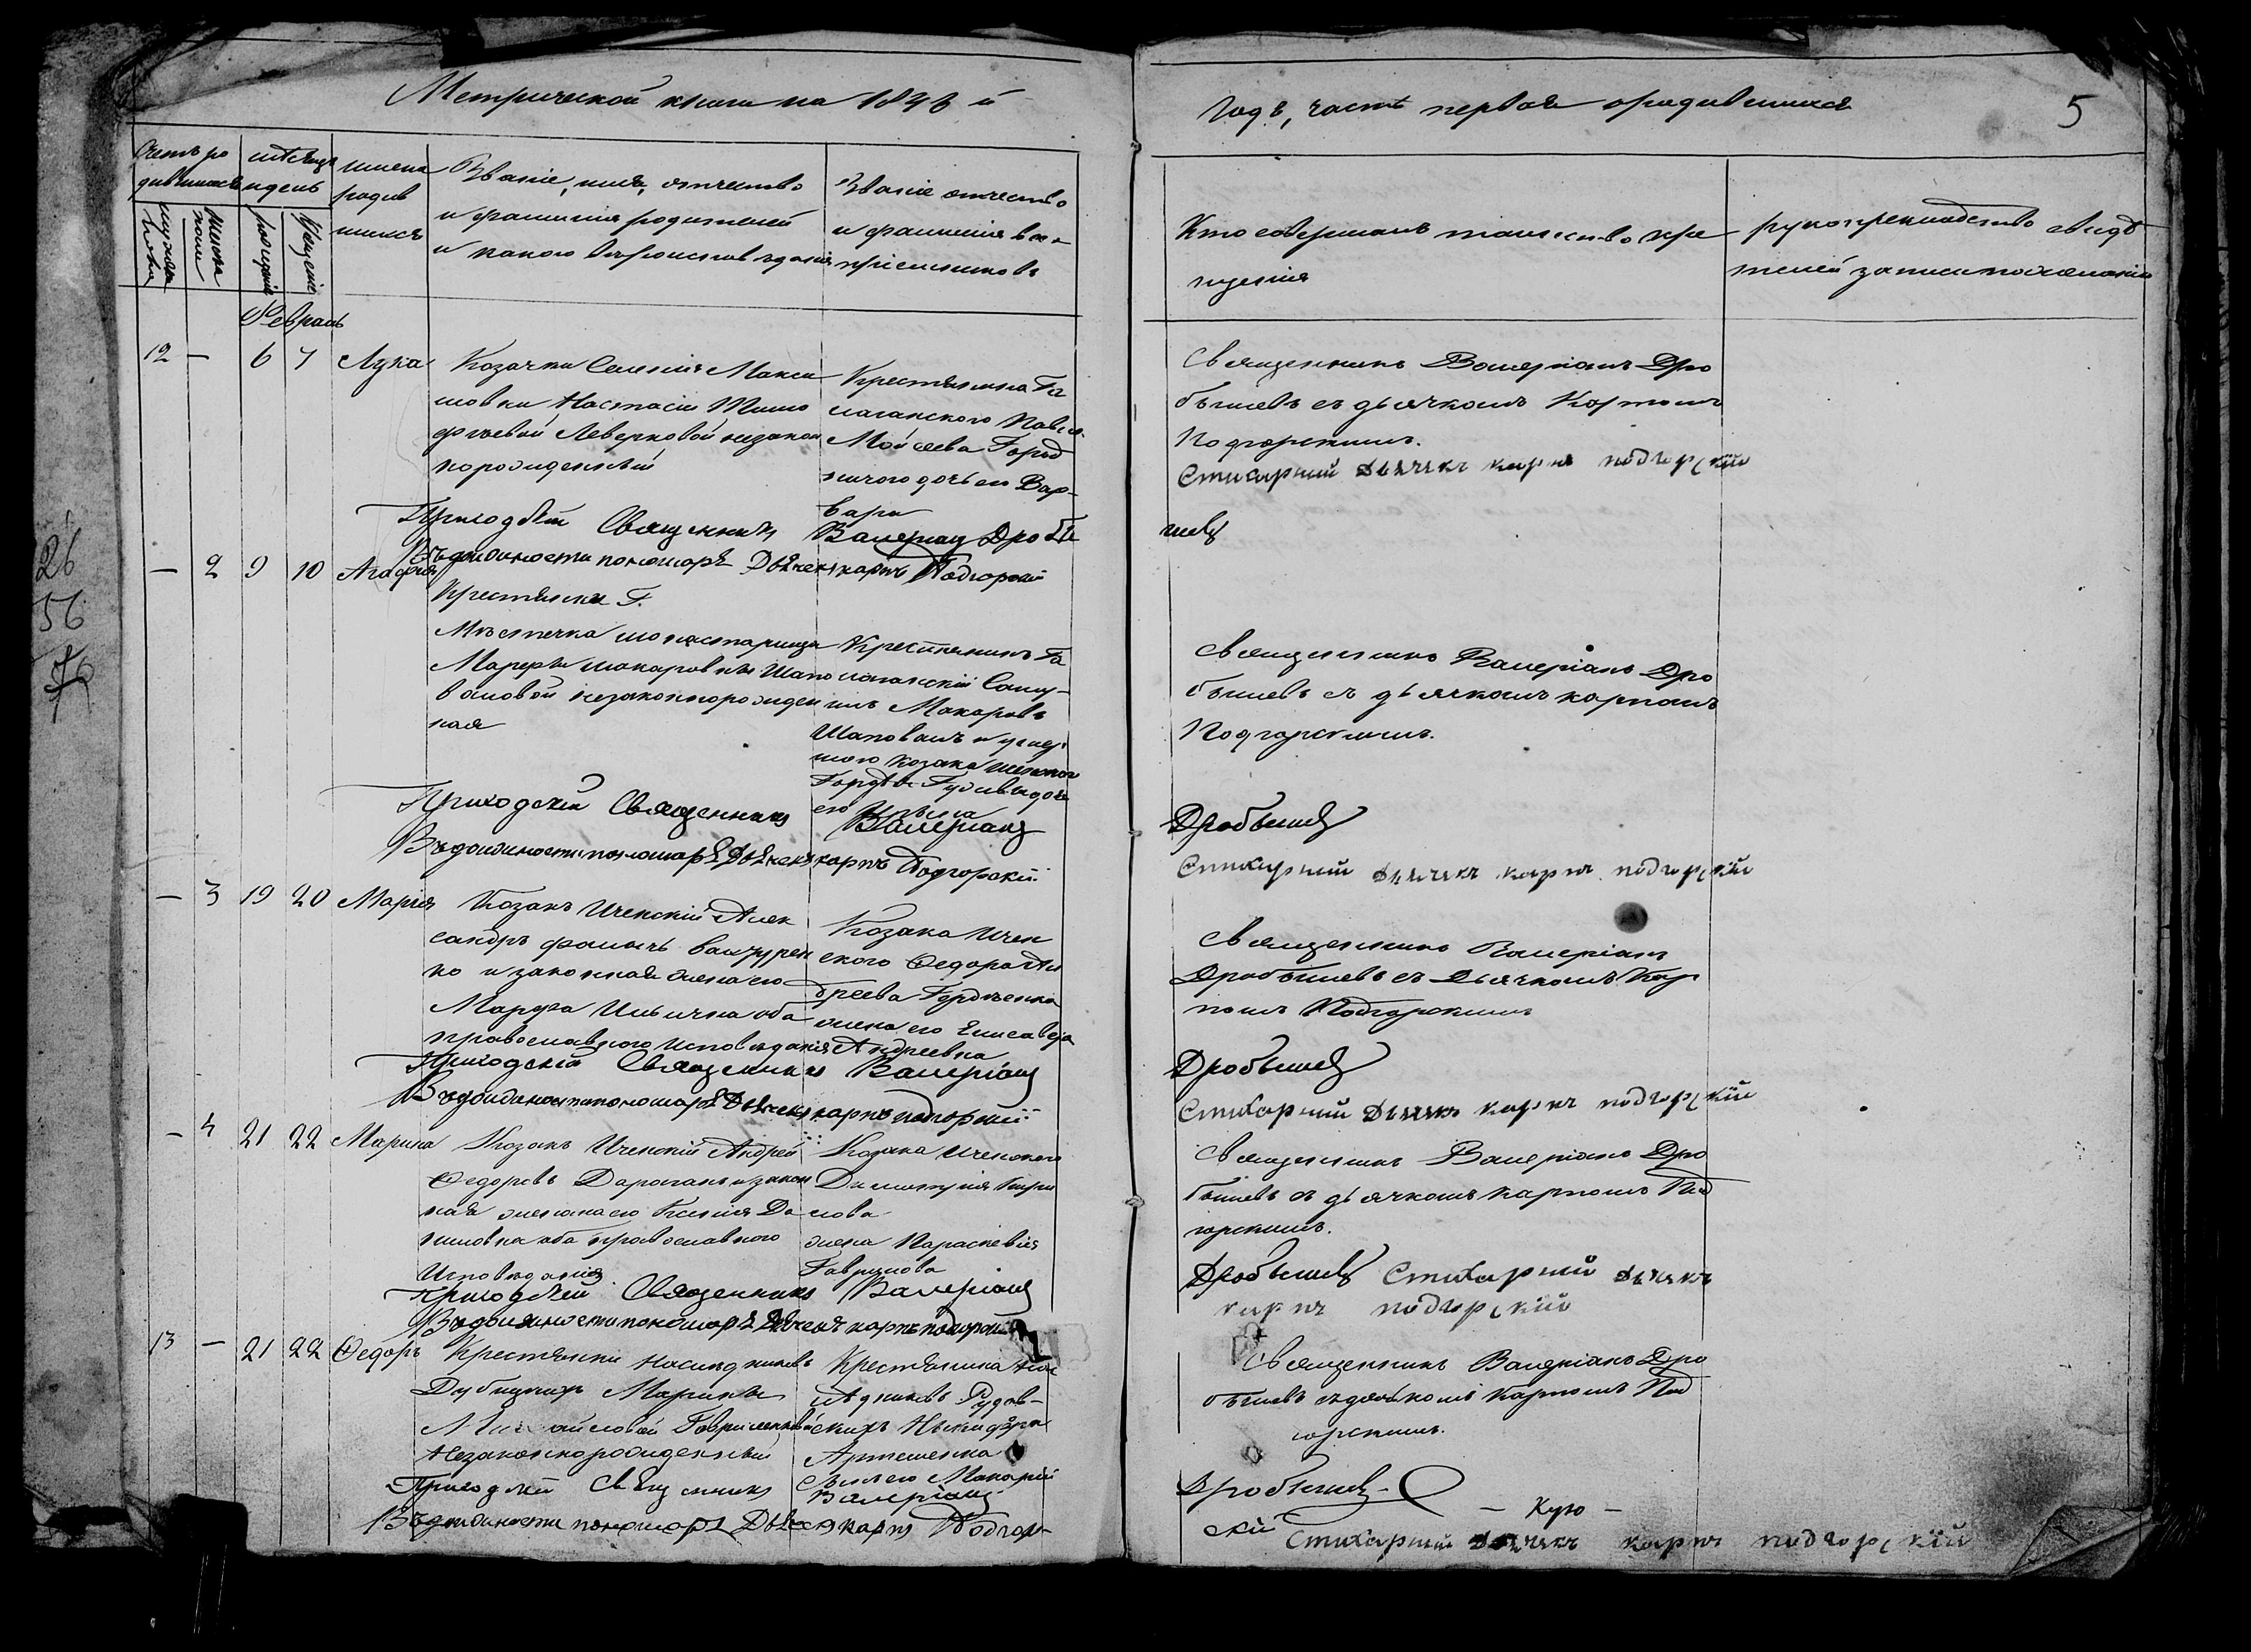 Метрической книги на 1846 й
Годъ, часть первая о родившихся
5
Счетъ ро
дившихся
мѣсяцъ
и день
имена
родив
шихся
Званіе, имя, отчество
и фамилія родителей
и какого вѣроисповѣданія
Званіе отчество
и фамилія вос
пріемниковъ
Кто совершалъ таинство кре
щенія
рукоприкладство свидѣ
телей записи по желанію
мужеска
пола
женска
пола
рожденіе
крещеніе
Февраль
12 — 6 7 Лука
Козачки Максі
мовки Настасіи Тимо
фѣевой Леверковой незакон
норожденный
Крестьянина Га
лаганского Павла
Мойсеева Город
ничого дочь его Вар-
вара
Священникъ Валеріанъ Дро
бышевъ съ дьячкомъ Карпомъ
Подгорскимъ.
Стихарный Дьячекъ карпъ подгорскій
Приходскій Священникъ Валеріанъ Дробы
шевъ
Въ должности пономаря Дьячекъ карпъ Подгорскій
— 2 9 10 Агафія
Крестьянки Г.
Мѣстечка монастарища
Марфы макаровны Шапо
валовой незаконнорожден
ная
Крестянинъ Га
лаганскій Саму-
илъ Макаровъ
Шаповалъ и
козака
его
Священникъ Валеріанъ Дро
бышевъ съ дьячкомъ карпомъ
Подгорскимъ.
Приходскій Священникъ Валеріанъ
Дробышевъ
Въ должности пономаря Дьячекъ карпъ Подгорскій
Стихарный Дьячекъ карпъ подгорскій
— 3 19 20 Марія
Козакъ Иченскій Алек
сандръ
но и законная жена его
Марфа Ильична оба
православного исповѣданія
Козака Ичен
ского Федора Ан
дреева Гордѣенка
жена его Елисавета
Андреевна
Священникъ Валеріанъ
Дробышевъ съ Дьячкомъ Кар
помъ Подгорскимъ
Приходскій Священникъ Валеріанъ
Дробышевъ
Въ должности пономаря Дьячекъ карпъ подгорскій
Стихарный Дьячекъ карпъ подгорскій
— 4 21 22 Марина
Козакъ Иченскій Андрей
Федоровъ Дараганъ и закон
ная жена его Ксенія Да
ниловна оба православного
Исповѣданія
Козака Иченского
Димитрія Кири
лова
жена Параскевія
Гаврилова
Священникъ Валеріанъ Дро
бышевъ съ дьячкомъ карпомъ Под
горскимъ.
Приходскій Священникъ Валеріанъ
Дробышевъ Стихарный дьячекъ
карпъ подгорскій
Въ должности пономаря Дьячекъ карпъ подгорскій
13 — 21 22 Федоръ
Крестьянки наслѣдниковъ
Марины
Гавриленковой
Незаконнорожденный
Крестянина нас
лѣдниковъ Рудов-
скихъ Никифора
Артеменка
сынъ его Макарій
Священникъ Валеріанъ Дро
бышевъ съ дьячкомъ Карпомъ Под
горскимъ.
Приходскій Священникъ Валеріанъ
Дробышевъ
Въ должности пономаря Дьячекъ карпъ Подгор-
скій
Стихарный дьячекъ карпъ подгорскій
26
56